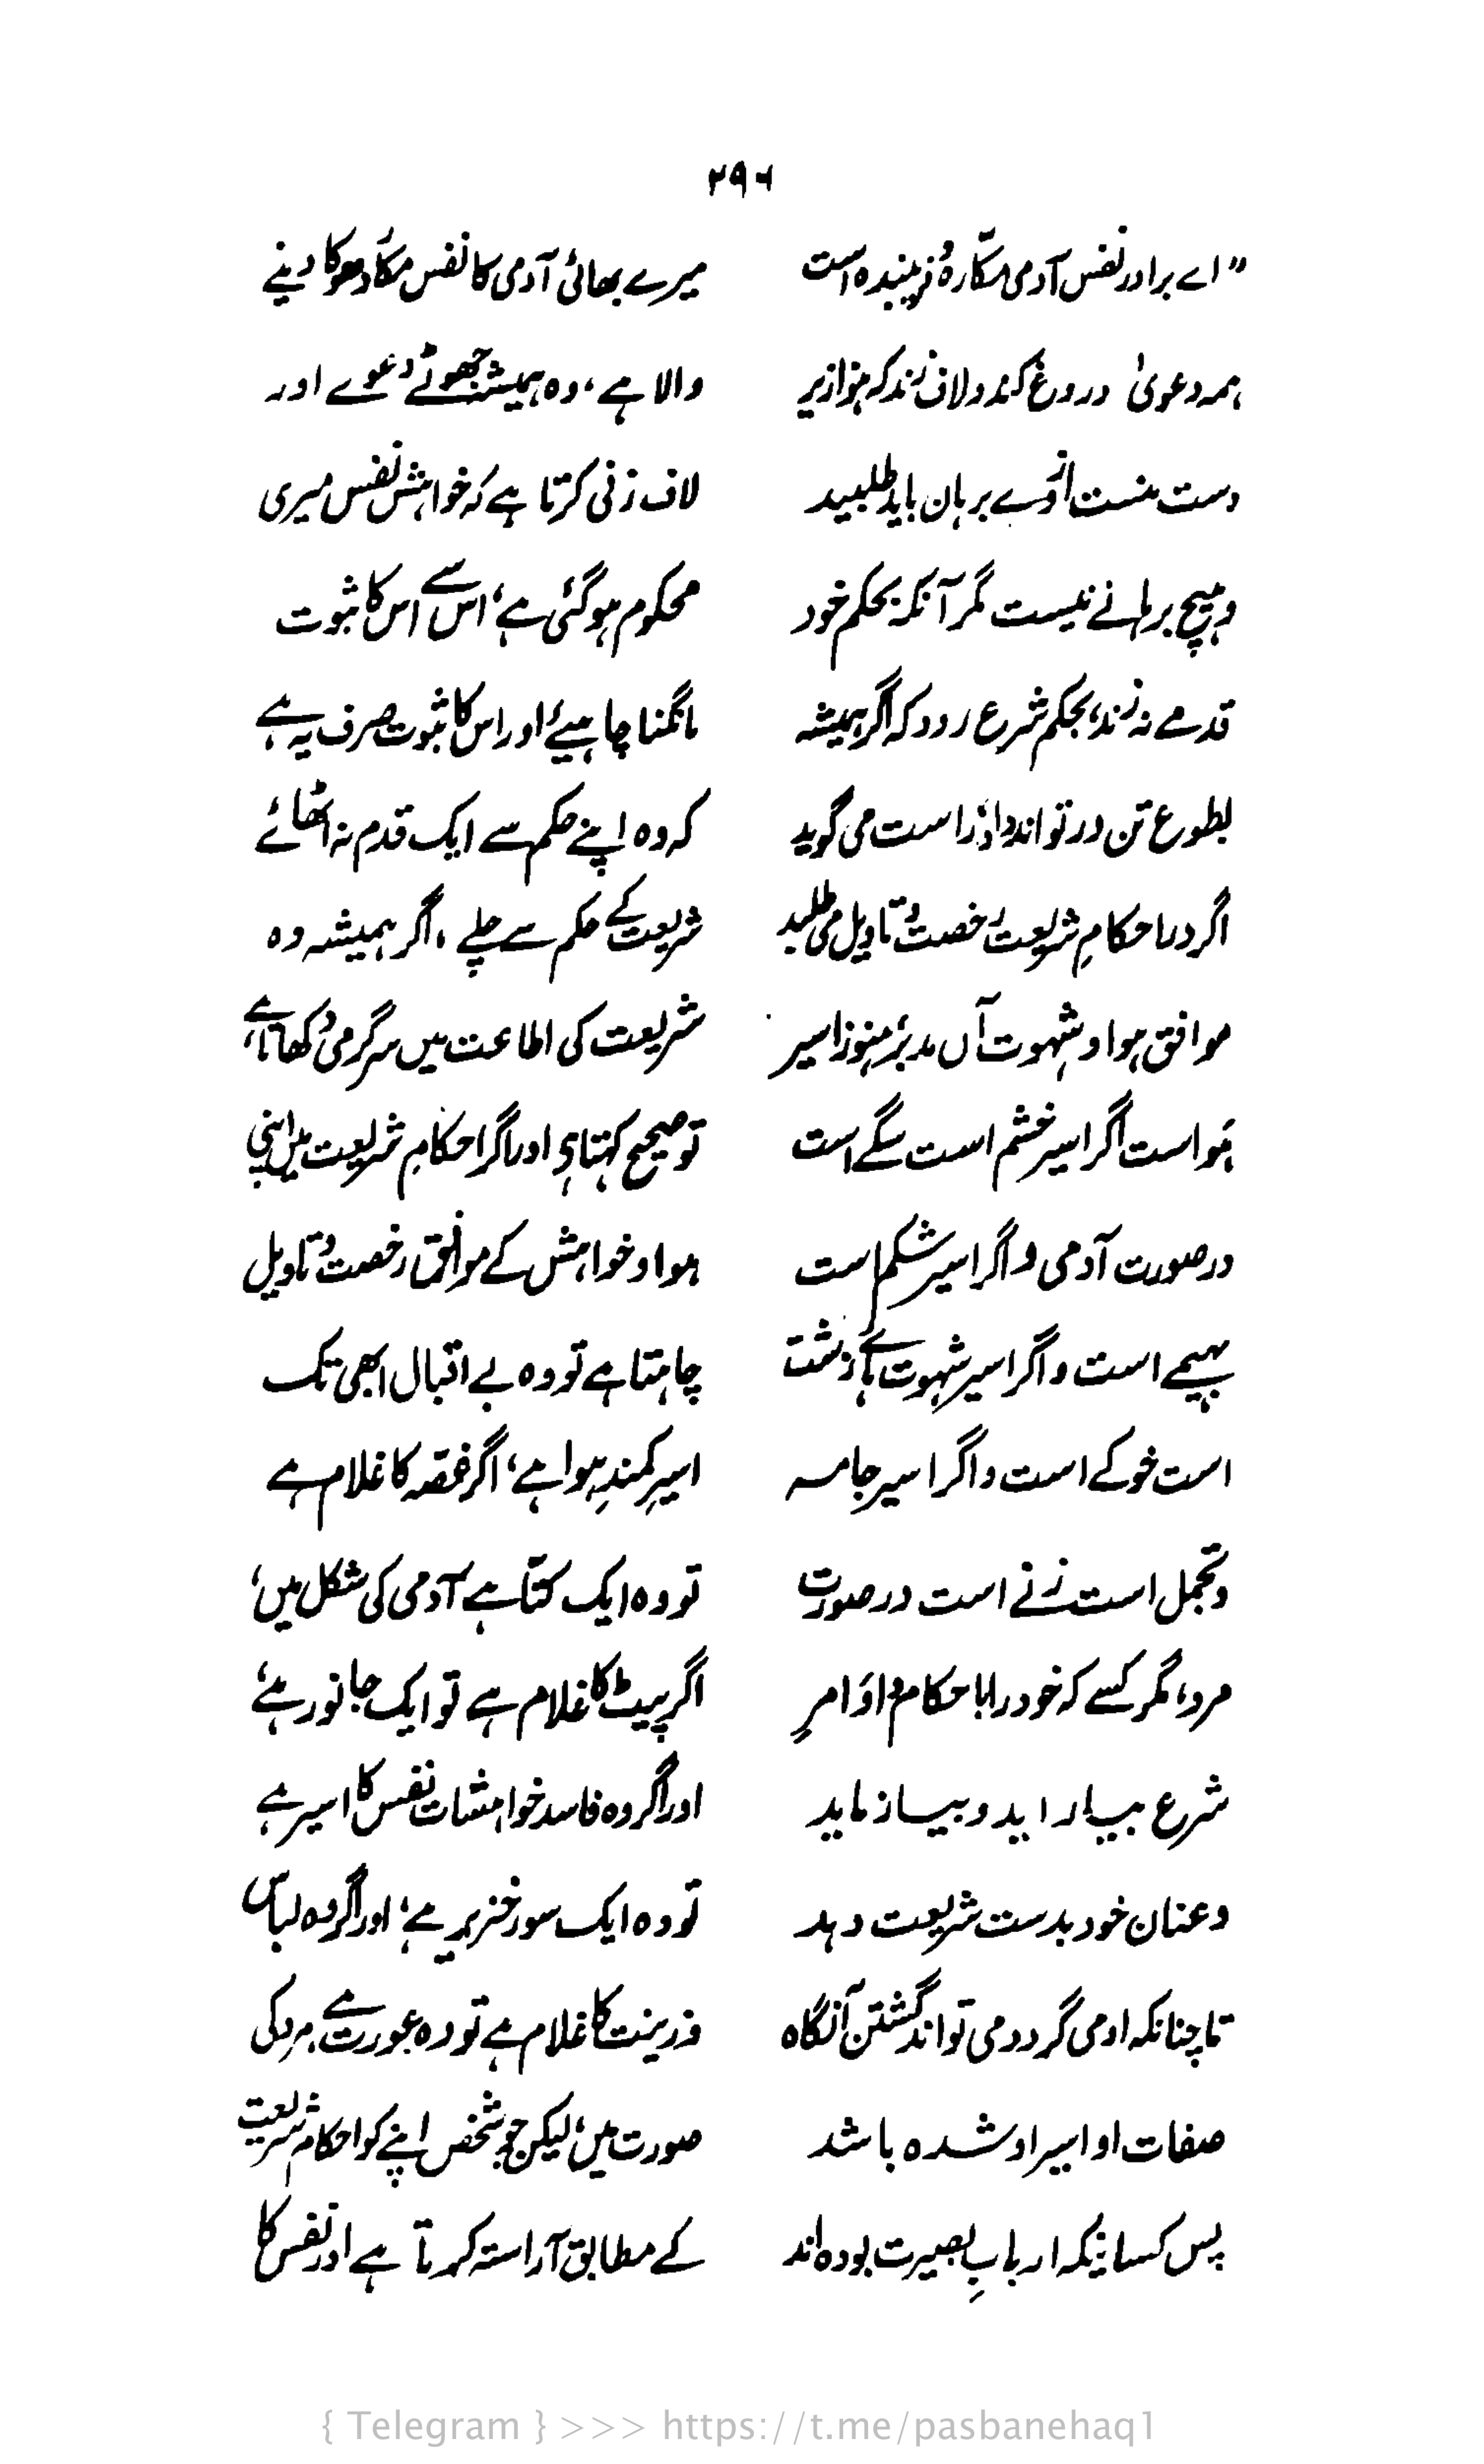 ۲۹۶
”اے برادر نفس آدمی مکّارہ و فریبندہ است
ہمہ دعویٰ دروغ کند و لاف زند کہ ہوا زیر
دست منست ازوے برہان باید طلبید
و ہیچ برہانے نیست مگر آنکہ بحکم خود
قدمے نہ زند، بحکم شرع رود کہ اگر ہمیشہ
بطوع تن در تو اند داد، راست می گوید
اگر در احکامِ شریعت رخصت و تاویل می طلبد
موافق ہوا و شہوت آں مدبر ہنوز اسیر
ہوا است اگر اسیر خشم است سگے است
در صورت آدمی و اگر اسیر شکم است
بہیمے است و اگر اسیر شہوت ہائے زشت
است خوکے است و اگر اسیر جامہ
و تجمل است زنے است در صورت
مرد، مگر کسے کہ خود را با حکام و اوامرِ
شرع بیاراید و بیازماید
و عنان خود بدست شریعت دہد
تا چنانکہ او می گردد می تواند گشتن آنگاہ
صفات او اسیر او شدہ باشد
پس کسانیکہ اربابِ بصیرت بودہ اند
میرے بھائی آدمی کا نفس مکّار دھوکا دینے
والا ہے، وہ ہمیشہ جھوٹے دعوے اور
لاف زنی کرتا ہے کہ خواہش نفس میری
محکوم ہو گئی ہے، اس سے اس کا ثبوت
مانگنا چاہیئے اور اس کا ثبوت صرف یہ ہے
کہ وہ اپنے حکم سے ایک قدم نہ اٹھائے
شریعت کے حکم سے چلے، اگر ہمیشہ وہ
شریعت کی اطاعت میں سرگرمی دکھاتا ہے،
تو صحیح کہتا ہے اور اگر احکامِ شریعت میں اپنی
ہوا و خواہش کے موافق رخصت و تاویل
چاہتا ہے تو وہ بے اقبال ابھی تک
اسیرِ کمندِ ہوا ہے، اگر غصّہ کا غلام ہے
تو وہ ایک کتّا ہے آدمی کی شکل میں،
اگر پیٹ کا غلام ہے تو ایک جانور ہے،
اور اگر وہ فاسد خواہشات نفس کا اسیر ہے
تو وہ ایک سور خنزیر ہے، اور اگر وہ لباس
و زینت کا غلام ہے تو وہ عورت ہے مرد کی
صورت میں، لیکن جو شخص اپنے کو احکام شریعت
کے مطابق آراستہ کرتا ہے اور نفس کا
{ Telegram } >>> https://t.me/pasbanehaq1